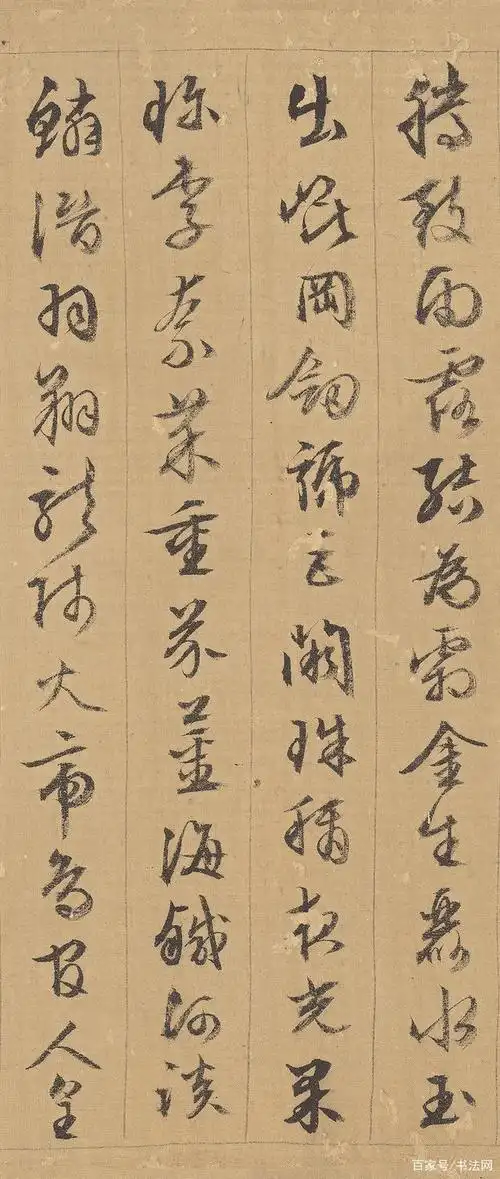 騰致雨露結為霜金生麗水玉
出崑岡劍號巨闕珠稱夜光果
珍李柰菜重芥薑海鹹河淡
鱗潛羽翔龍師火帝鳥官人皇
百家号/书法网